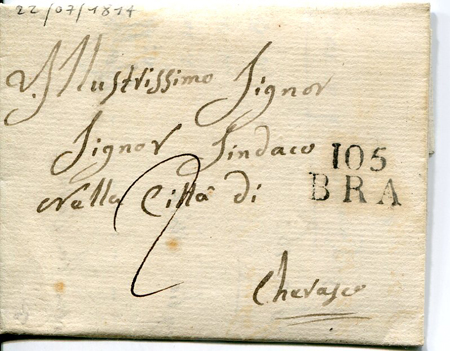 22/07/1814
Illustrissimo Signor
Signor Sindaco
105
nella Città di
BRA
2
Cherasco